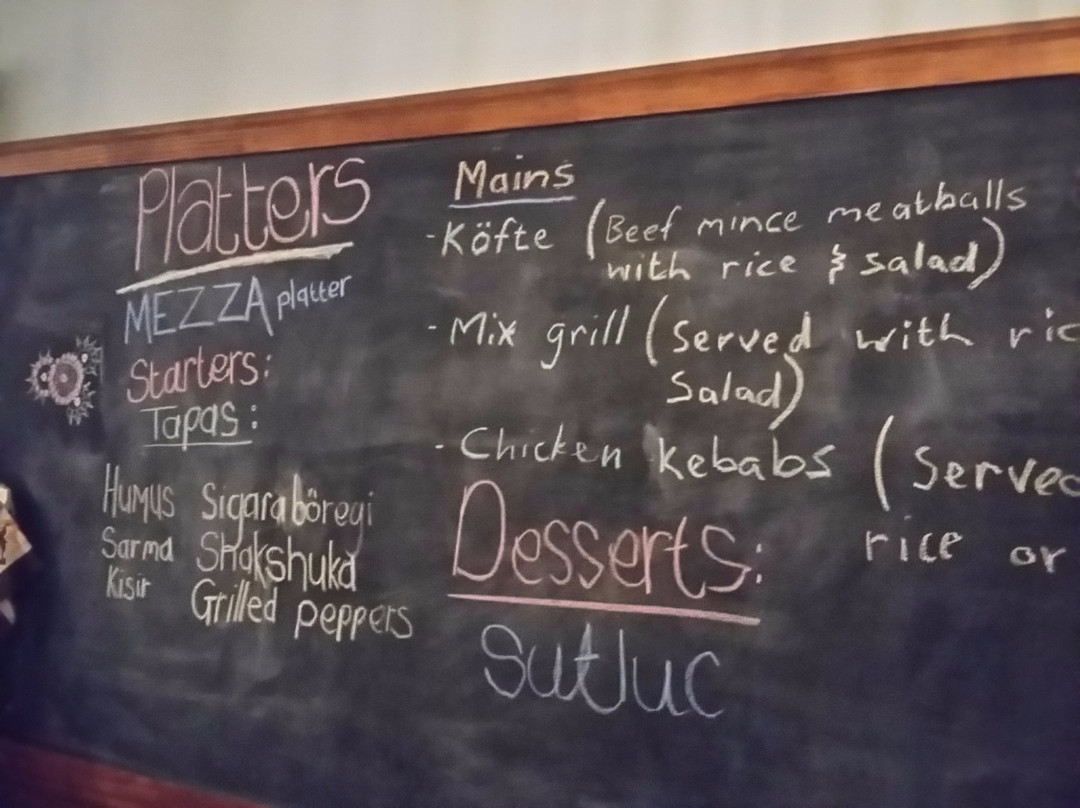 Platters
MEZZA platter
Starters:
Tapas:
Humus Sigara böregi
Sarma Shakshuka
Kisir Grilled peppers
Mains
-Köfte (Beef mince meatballs
with rice & salad)
-Mix grill (Served with ric
Salad)
-Chicken kebabs (Served
rice or
Desserts:
Sutluc